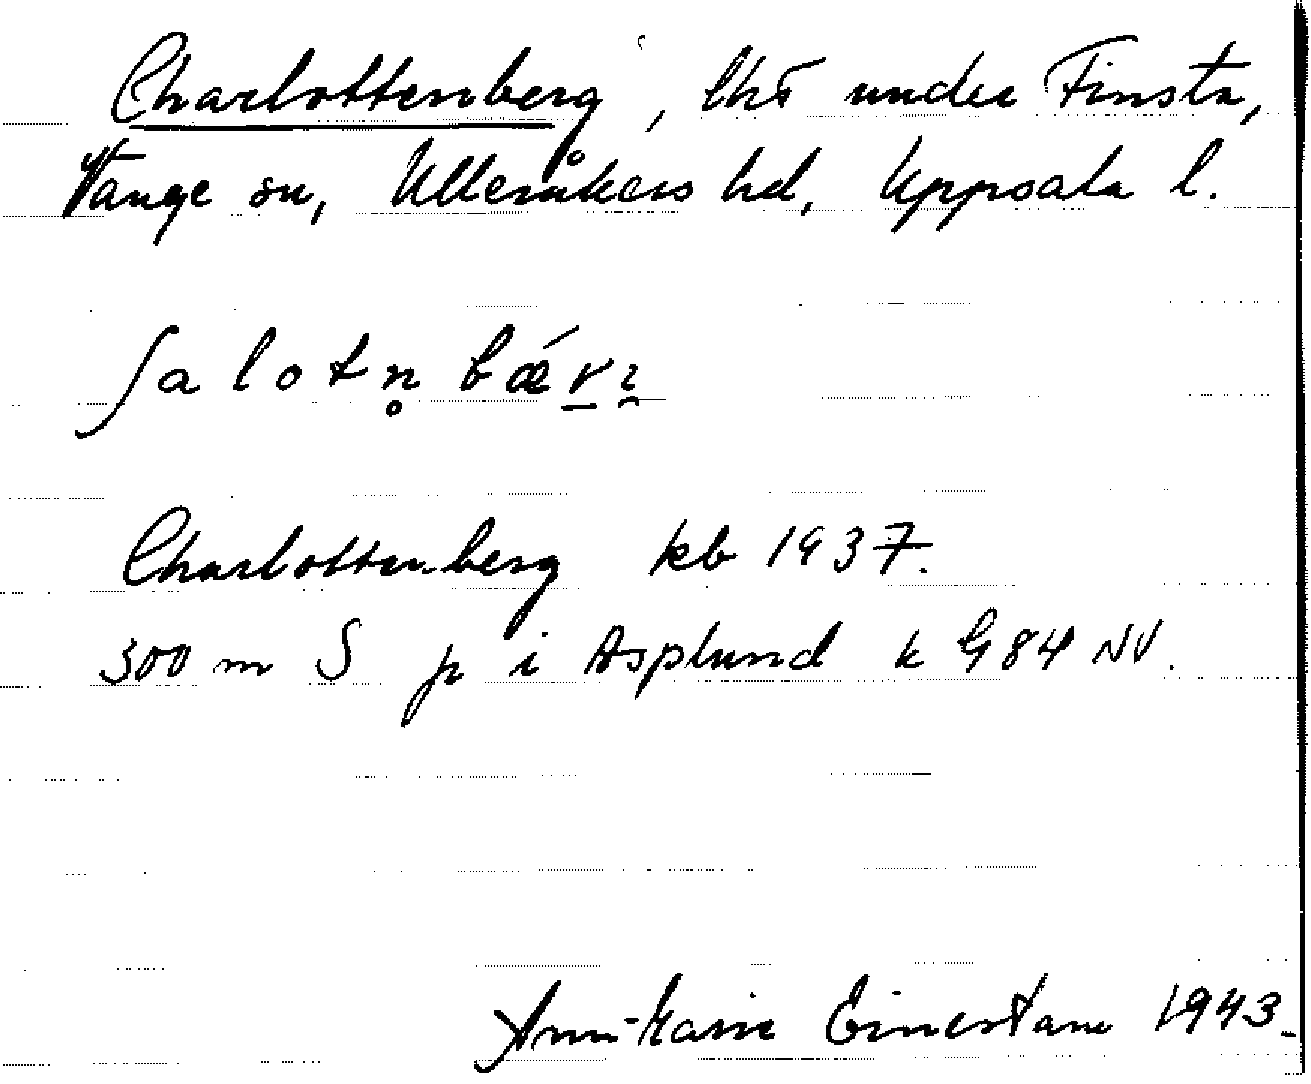 Charlottenberg, lht under Finsta,
Vänge sn, Ulleråkers hd, Uppsala l.
ʃalotn̥bǽr̲ı̯
Charlottenberg kb 1937.
300 m S p i Asplund k G84 NV.
Ann-Marie 1943